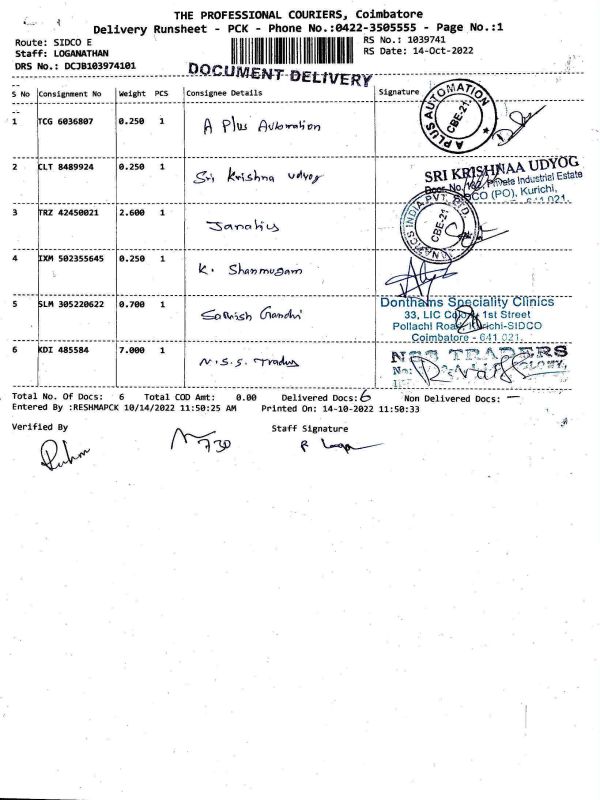 THE PROFESSIONAL COURIERS, Coimbatore
Delivery Runsheet - PCK - Phone No.:0422-3505555 - Page No.:1
Route: SIDCO E
RS No.: 1039741
Staff: LOGANATHAN
RS Date: 14-Oct-2022
DRS No.: DCJB103974101
DOCUMENT DELIVERY
S No Consignment No Weight PCS Consignee Details Signature
1 TCG 6036807 0.250 1 A Plus Automation
A PLUS AUTOMATION CBE-21.
2 CLT 8489924 0.250 1 Sri Krishna udyog
SRI KRISHNAA UDYOG
Door No. Private Industrial Estate
SIDCO (PO), Kurichi,
641 021.
3 TRZ 42450021 2.600 1 Janatics
JANATICS INDIA PVT. LTD. CBE-21
4 IXM 502355645 0.250 1 K. Shanmugam
5 SLM 305220622 0.700 1 Gandhi
Donthams Speciality Clinics
33, LIC Colony 1st Street
Pollachi Road, Kurichi-SIDCO
Coimbatore - 641 021.
6 KDI 485584 7.000 1 N.S.S. Traders
NSS TRADERS
Total No. Of Docs: 6 Total COD Amt: 0.00 Delivered Docs: 6 Non Delivered Docs: —
Entered By :RESHMAPCK 10/14/2022 11:50:25 AM Printed On: 14-10-2022 11:50:33
Verified By
Staff Signature
730